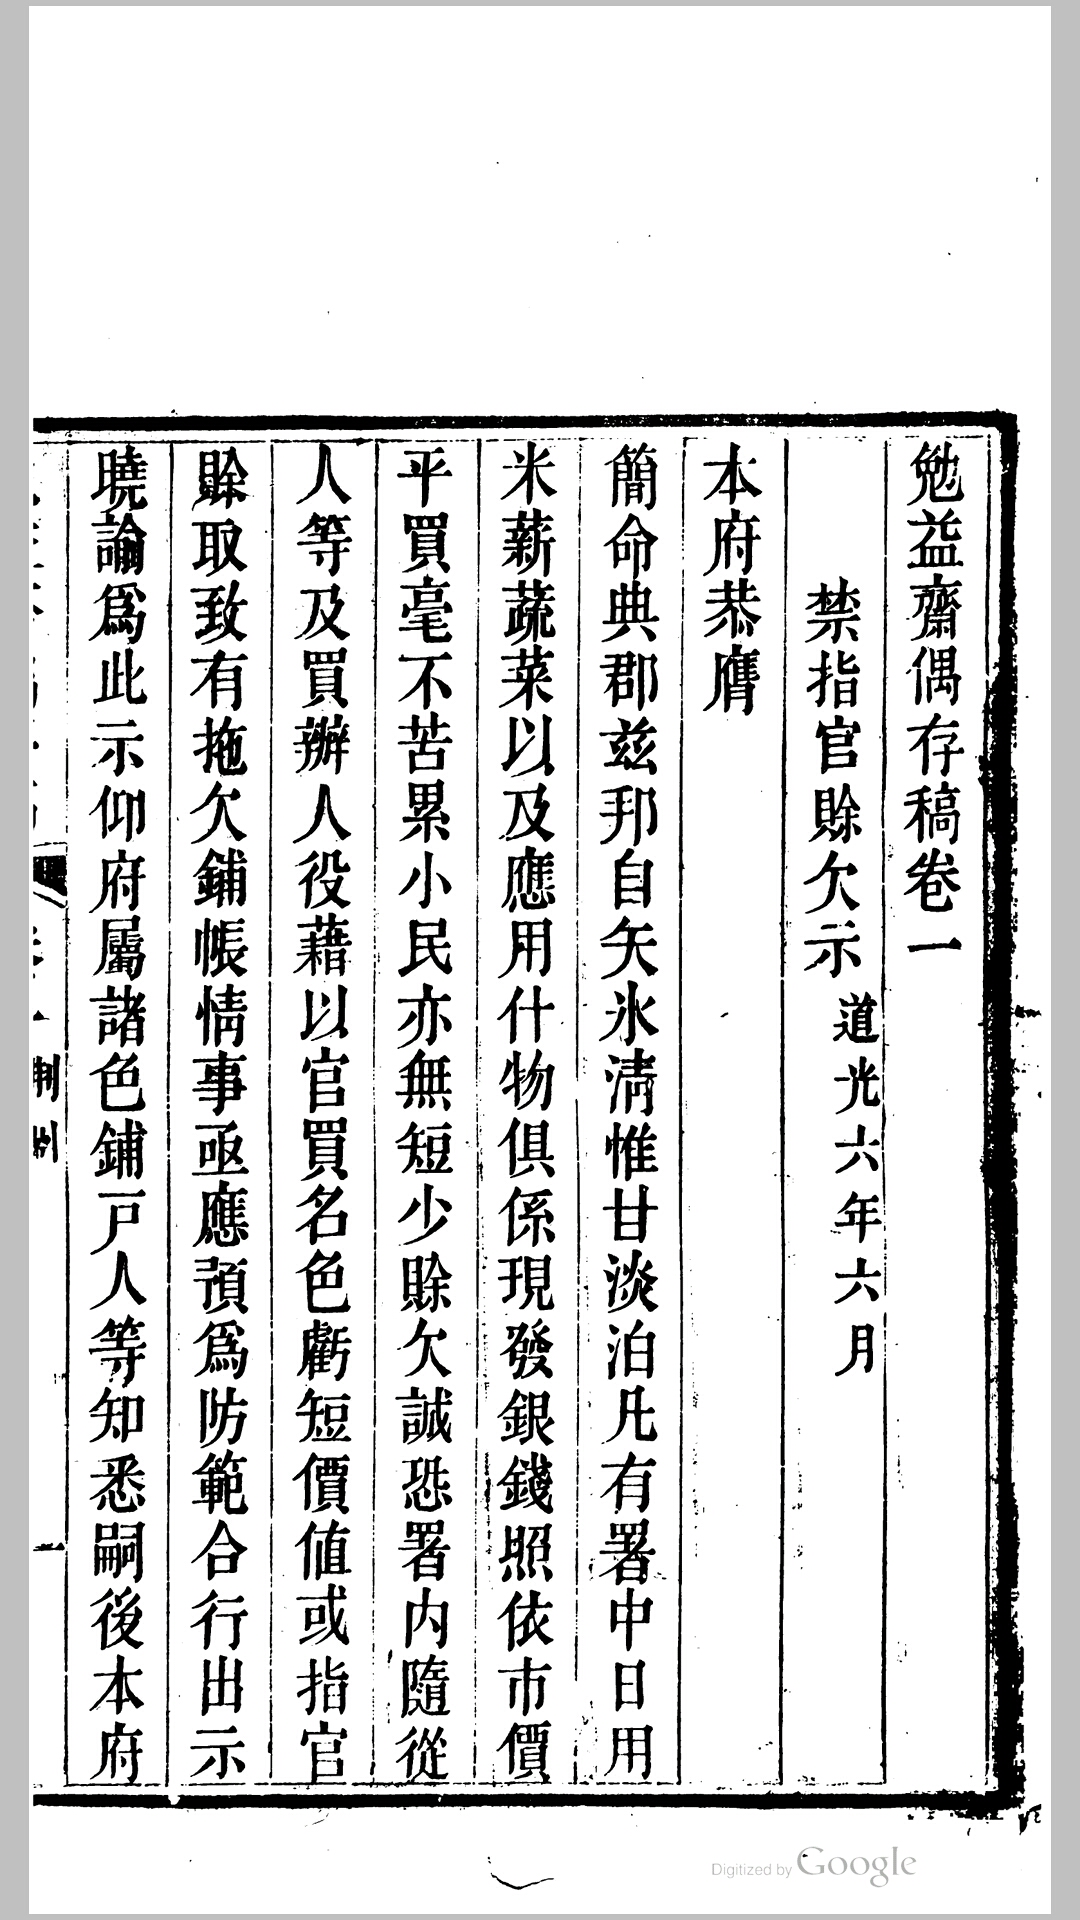 勉益齋偶存稿卷一
禁指官賒欠示道光六年六月
本府恭膺
簡命典郡兹邦自矢氷清惟甘淡泊凡有署中日用
米薪蔬菜以及應用什物俱係現發銀錢照依市價
平買毫不苦累小民亦無短少賒欠誠恐署內隨從
人等及買辦人役藉以官買名色虧短價值或指官
賒取致有拖欠鋪帳情事亟應預爲防範合行出示
曉諭爲此示仰府屬諸色鋪戸人等知悉嗣後本府
Digitized by Google